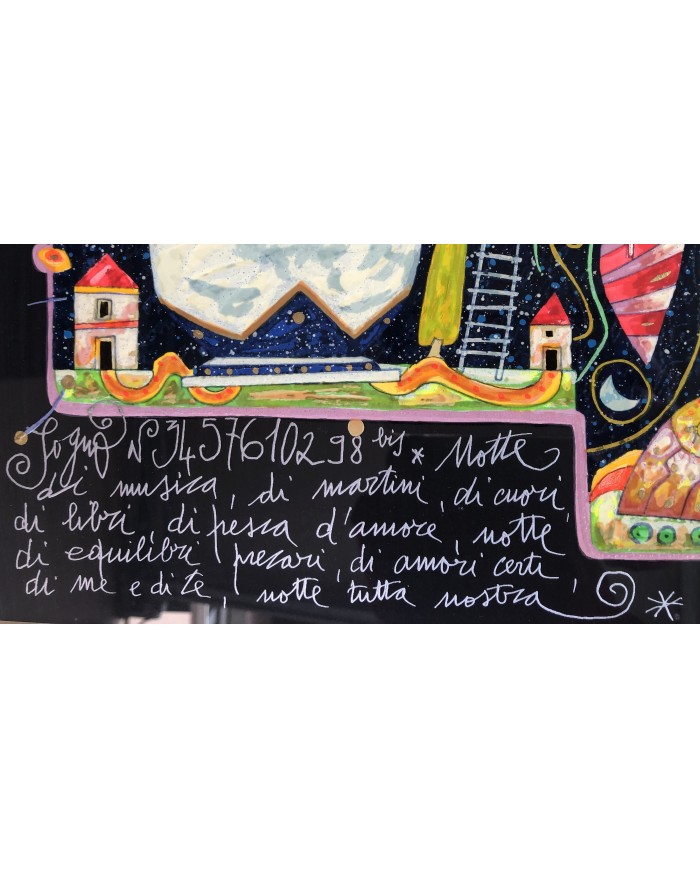 Sogno N° 3457610298 bis * Notte
di musica, di martini, di cuori,
di libri di pesca d'amore, notte
di equilibri precari, di amori certi
di me e di te, notte tutta nostra,